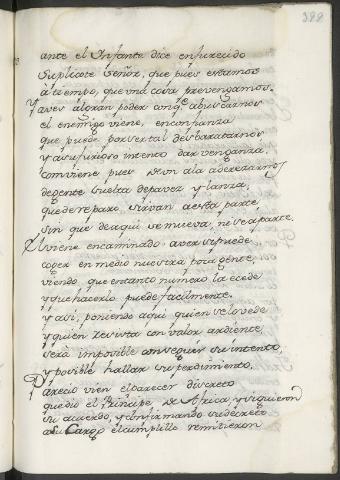 388
ante el Infante dice enfurecido
suplicote señor, que pues estamos
a tiempo, que una cosa prevengamos.
el enemigo viene, en confianza
que puede por su tal desbaratarnos
y a su furioso intento dar venganza.
conviene pues de un ala aderezarnos
de gente suelta de pavez y lanza,
que de reparo sirvan a esta parte
sin que de aqui se mueva, ni se aparte.
El viene encaminado a ver si puede
coger en medio nuestra poca gente,
viendo, que en tanto numero la ecede
y que hacerlo puede facilmente.
y asi, poniendo aqui quien se lo vede
y quien resista con valor ardiente,
sera imposible conseguir su intento,
y posible hallar su perdimiento.
Parecio vien el parecer discreto
que dio el Principe de Africa, y siguieron
su acuerdo, y confirmando su decreto
a su cargo el cumplillo remitieron